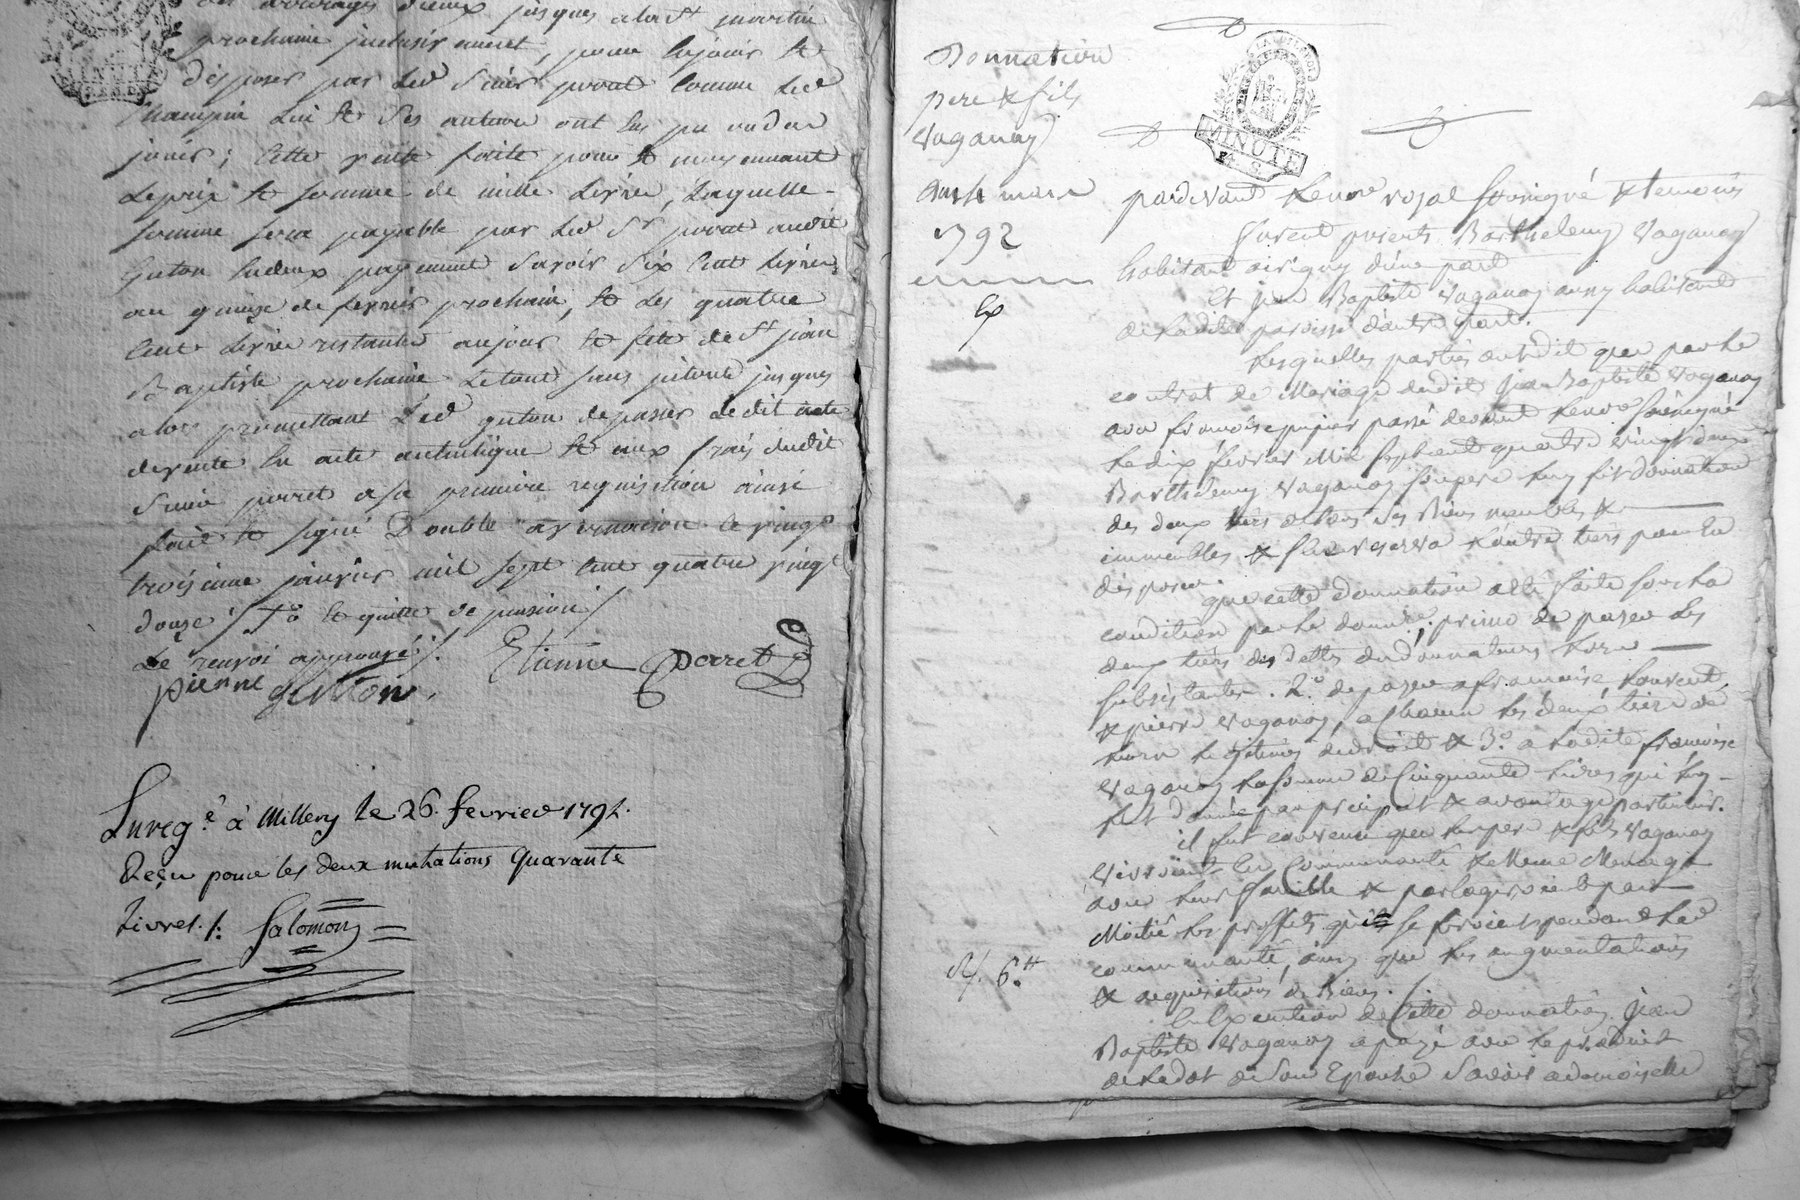 prochaine inclusivement, pour en jouir et
disposer par led Sieur porret comme led
jouir; cette vente faite pour et moyennant
le prix et somme de mille Livres, Laquelle
somme sera payable par led Sr porret audit
guton en deux payement Savoir Six cent Livres
au quinze de fevrier prochain, et Les quatre
Cent Livres restantes au jour et fete de St jean
Baptiste prochaine Letout sans interets jusques
alors promettant Led guton de passer dedit acte
de vente en acte authentique et aux frais dudit
Sieur porret a sa premiere requisition ainsi
fait et signé Double a vernaison le vingt
troisieme janvier mil sept cent quatre vingt
douze
Le renvoi approuvé
Etienne Porret
pierre guton
Enregé à Millery le 26 fevrier 1792.
Reçu pour les deux mutations Quarante
Livres /: Salomon
Donnation
pere & fils
Vaganay
du 4 mars
1792
MINUTE
pardevant Lenore royal soussigné & temoins
furent presents Barthelemy Vaganay
habitant a irigny d'une part
Et jean Baptiste Vaganay aussy habitant
de ladite paroisse d'autre part.
Lesquelles parties ont dit que par le
contrat de Mariage dudit jean Baptiste Vaganay
avec françoise pipier passé devant Lenore soussigné
Le dix fevrier Mil sept cent quatre vingt deux
Barthelemy Vaganay son pere luy fit donnation
des deux tiers de tous ses Biens meubles &
immeubles & se reserva L'autre tiers pour en
disposer.
que cette donnation a été faite sous la
condition par le donnre. primo de payer les
deux tiers des dettes du donnateur lors
subsistantes. 2.° de payer a françoise Laurent
& pierre Vaganay, a chacun les deux tiers de
leurs Legitimes de droit & 3.° a ladite françoise
Vaganay la somme de Cinquante Livres qui luy
fut donnée par preciput & avantage particulier.
il fut convenu que les pere & fils Vaganay
vivroient en Communauté & Meme Menage
avec leur famille & partageroient par
Moitié les proffits qu'ils se feroient pendant lad
communauté, ainsy que les augmentations
& acquisitions de Biens.
6.tt
En Execution de Cette donnation jean
Baptiste Vaganay a payé avec le produit
de la dot de son Epouse Savoir a demoiselle